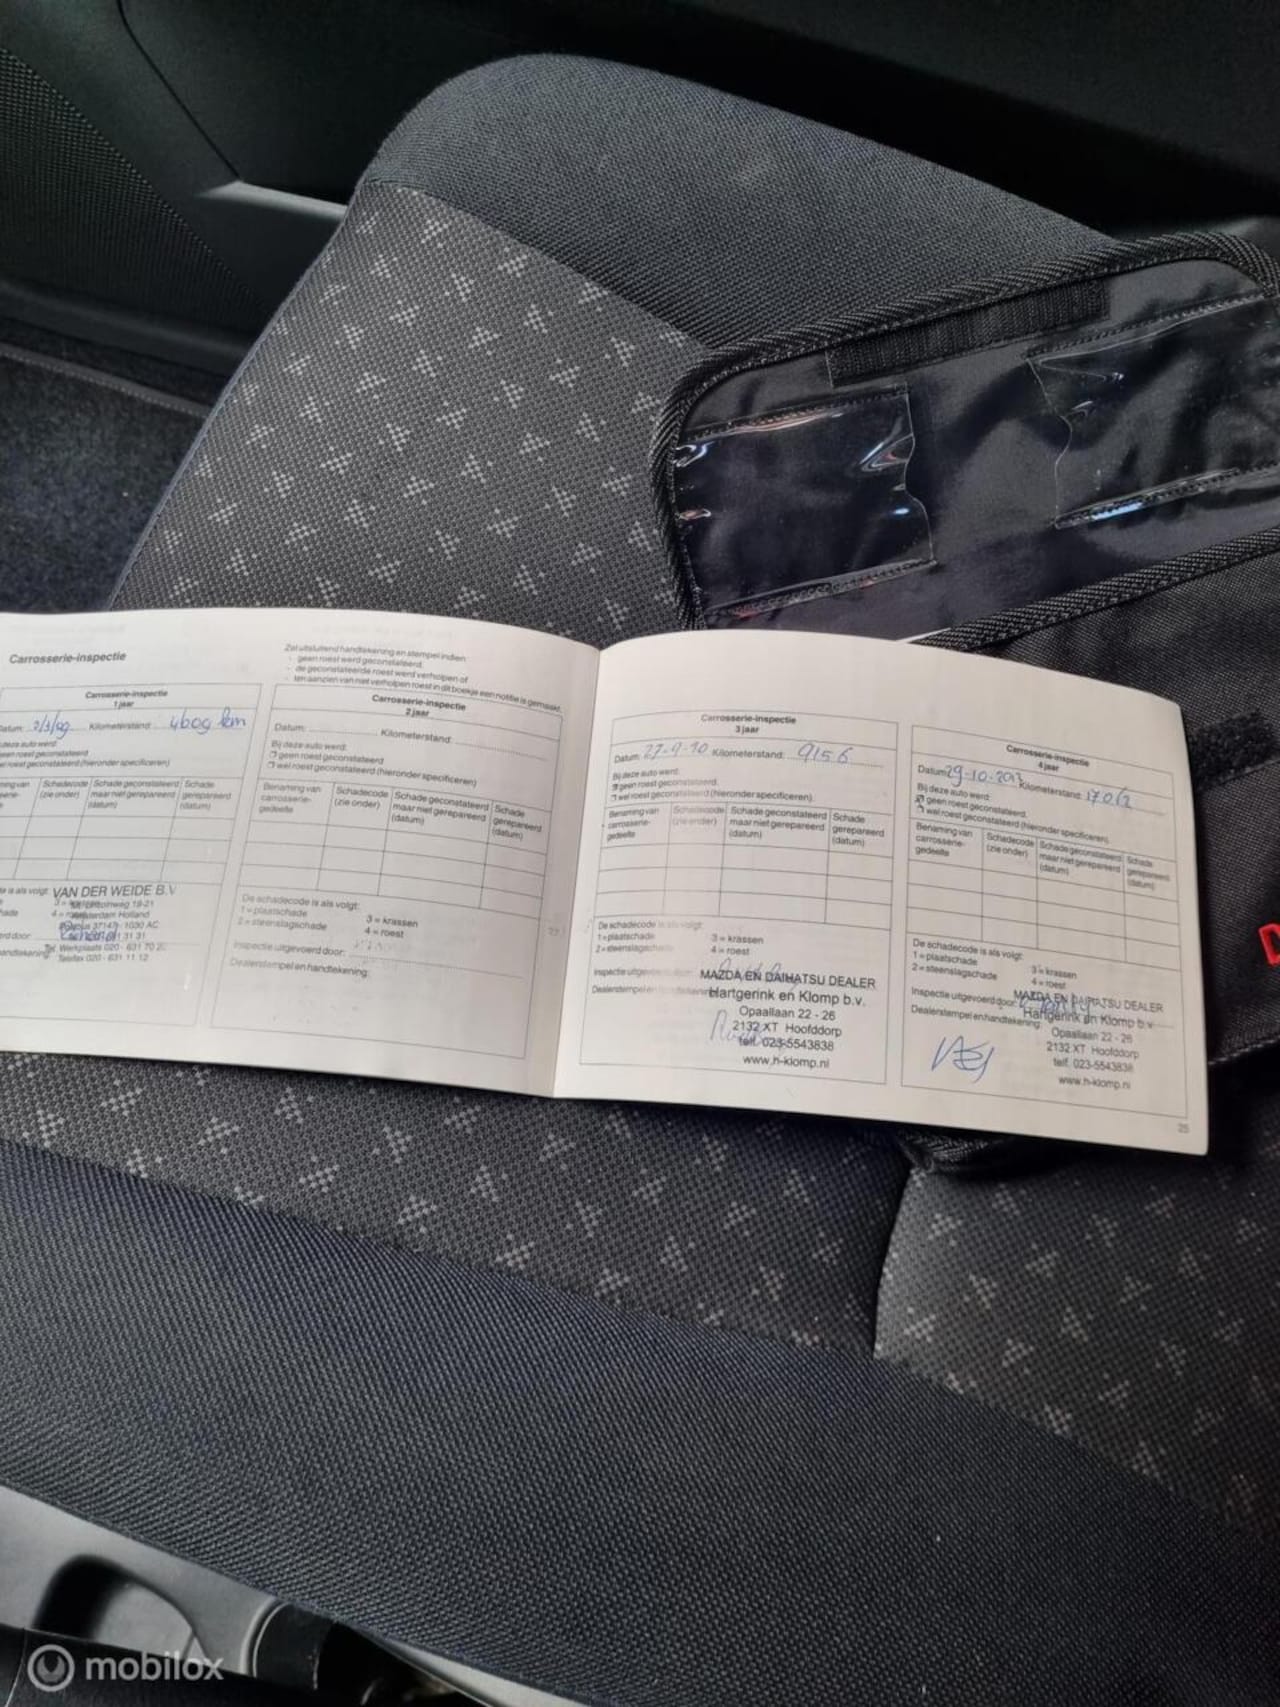 Carrosserie-inspectie
Zet uitsluitend handtekening en stempel indien:
- geen roest werd geconstateerd,
- de geconstateerde roest werd verholpen of
- ten aanzien van niet verholpen roest in dit boekje een notitie is gemaakt.
Carrosserie-inspectie
1 jaar
Datum: 2/3/09 Kilometerstand: 4609 km
deze auto werd:
geen roest geconstateerd
wel roest geconstateerd (hieronder specificeren)
Schadecode (zie onder)
Schade geconstateerd maar niet gerepareerd (datum)
Schade gerepareerd (datum)
is als volgt:
VAN DER WEIDE B.V
3 = krassen
4 = roest
Amsterdam Holland
1030 AC
Tel. Werkplaats 020 - 631 70
Telefax 020 - 631 11 12
Carrosserie-inspectie
2 jaar
Datum: Kilometerstand:
Bij deze auto werd:
geen roest geconstateerd
wel roest geconstateerd (hieronder specificeren)
Benaming van carrosserie-gedeelte
Schadecode (zie onder)
Schade geconstateerd maar niet gerepareerd (datum)
Schade gerepareerd (datum)
De schadecode is als volgt:
1 = plaatschade 3 = krassen
2 = steenslagschade 4 = roest
Inspectie uitgevoerd door:
Dealerstempel en handtekening:
Carrosserie-inspectie
3 jaar
Datum: 27-9-10 Kilometerstand: 9156
Bij deze auto werd:
geen roest geconstateerd.
wel roest geconstateerd (hieronder specificeren).
Benaming van carrosserie-gedeelte
Schadecode (zie onder)
Schade geconstateerd maar niet gerepareerd (datum)
Schade gerepareerd (datum)
De schadecode is als volgt:
1 = plaatschade 3 = krassen
2 = steenslagschade 4 = roest
Inspectie uitgevoerd door:
Dealerstempel en handtekening:
MAZDA EN DAIHATSU DEALER
Hartgerink en Klomp b.v.
Opaallaan 22 - 26
2132 XT Hoofddorp
telf. 023-5543838
www.h-klomp.nl
Carrosserie-inspectie
4 jaar
Datum: 29-10-2013 Kilometerstand: 17012
Bij deze auto werd:
geen roest geconstateerd.
wel roest geconstateerd (hieronder specificeren).
Benaming van carrosserie-gedeelte
Schadecode (zie onder)
Schade geconstateerd maar niet gerepareerd (datum)
Schade gerepareerd (datum)
De schadecode is als volgt:
1 = plaatschade 3 = krassen
2 = steenslagschade 4 = roest
Inspectie uitgevoerd door:
Dealerstempel en handtekening:
MAZDA EN DAIHATSU DEALER
Hartgerink en Klomp b.v
Opaallaan 22 - 26
2132 XT Hoofddorp
telf. 023-5543838
www.h-klomp.nl
25
mobilox